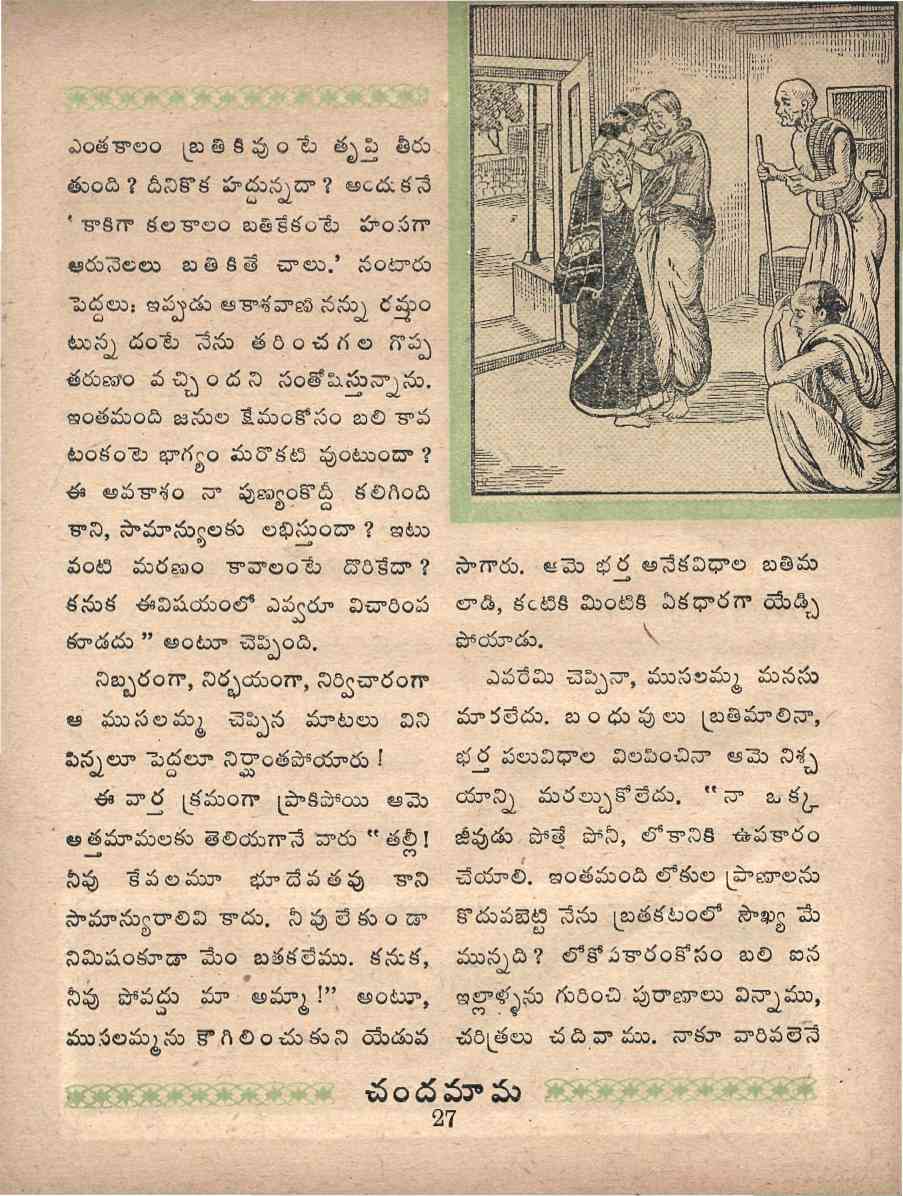 ఎంతకాలం బ్రతికివుంటే తృప్తి తీరు
తుంది? దీనికొక హద్దున్నదా? అందుకనే
‘కాకిగా కలకాలం బతికేకంటే హంసగా
ఆరునెలలు బతికితే చాలు.’ నంటారు
పెద్దలు: ఇప్పుడు ఆకాశవాణి నన్ను రమ్మం
టున్న దంటే నేను తరించగల గొప్ప
తరుణం వచ్చిందని సంతోషిస్తున్నాను.
ఇంతమంది జనుల క్షేమంకోసం బలి కావ
టంకంటె భాగ్యం మరొకటి వుంటుందా?
ఈ అవకాశం నా పుణ్యంకొద్దీ కలిగింది
కాని, సామాన్యులకు లభిస్తుందా? ఇటు
వంటి మరణం కావాలంటే దొరికేదా?
కనుక ఈవిషయంలో ఎవ్వరూ విచారింప
కూడదు” అంటూ చెప్పింది.
నిబ్బరంగా, నిర్భయంగా, నిర్విచారంగా
ఆ ముసలమ్మ చెప్పిన మాటలు విని
పిన్నలూ పెద్దలూ నిర్ఘాంతపోయారు!
ఈ వార్త క్రమంగా ప్రాకిపోయి ఆమె
అత్తమామలకు తెలియగానే వారు “తల్లీ!
నీవు కేవలమూ భూదేవతవు కాని
సామాన్యురాలివి కాదు. నీవులేకుండా
నిమిషంకూడా మేం బతకలేము. కనుక,
నీవు పోవద్దు మా అమ్మా!” అంటూ,
ముసలమ్మను కౌగిలించుకుని యేడువ
సాగారు. ఆమె భర్త అనేకవిధాల బతిమ
లాడి, కంటికి మింటికి ఏకధారగా యేడ్చి
పోయాడు.
ఎవరేమి చెప్పినా, ముసలమ్మ మనసు
మారలేదు. బంధువులు బ్రతిమాలినా,
భర్త పలువిధాల విలపించినా ఆమె నిశ్చ
యాన్ని మరల్చుకోలేదు. “నా ఒక్క
జీవుడు పోతే పోనీ, లోకానికి ఉపకారం
చేయాలి. ఇంతమంది లోకుల ప్రాణాలను
కొదువబెట్టి నేను బ్రతకటంలో సౌఖ్య మే
మున్నది? లోకోపకారంకోసం బలి ఐన
ఇల్లాళ్ళను గురించి పురాణాలు విన్నాము,
చరిత్రలు చదివాము. నాకూ వారివలెనే
చందమామ
27